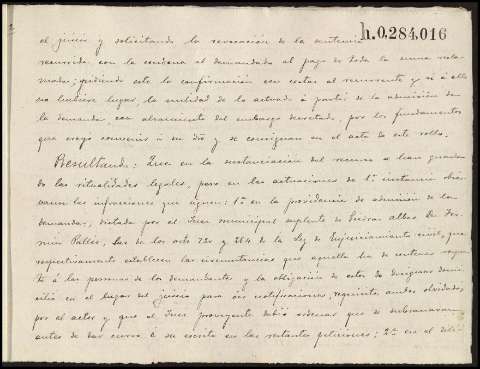 h.0.284,016
el juicio y solicitando la revocación de la sentencia
recurrida con la condena al demandado al pago de toda la suma recla-
mada; pidiendo este la confirmación con costas al recurrente y si á ello
no hubiere lugar, la nulidad de lo actuado á partir de la admisión de
la demanda, con alzamiento del embargo decretado, por los fundamentos
que creyó convenir á su dro y se consignan en el acta de este rollo.
Resultando: Que en la sustanciación del recurso se han guarda-
do las ritualidades legales, pero en las actuaciones de 1ª instancia obser-
varon las infracciones que siguen: 1ª en la providencia de admisión de la
demanda, dictada por el Juez municipal suplente de Piedras Albas Dn Fer-
min Pallés, las de los arts 720 y 264 de la Ley de Enjuiciamiento civil, que
respectivamente establecen las circunstancias que aquella ha de contener respec-
to á las personas de los demandantes y la obligación de estos de designar domi-
cilio en el lugar del juicio para oir notificaciones, requisitos ambos olvidados
por el actor y que el Juez proveyente debió ordenar que se subsanaran
antes de dar curso á su escrito en las restantes peticiones; 2ª en el